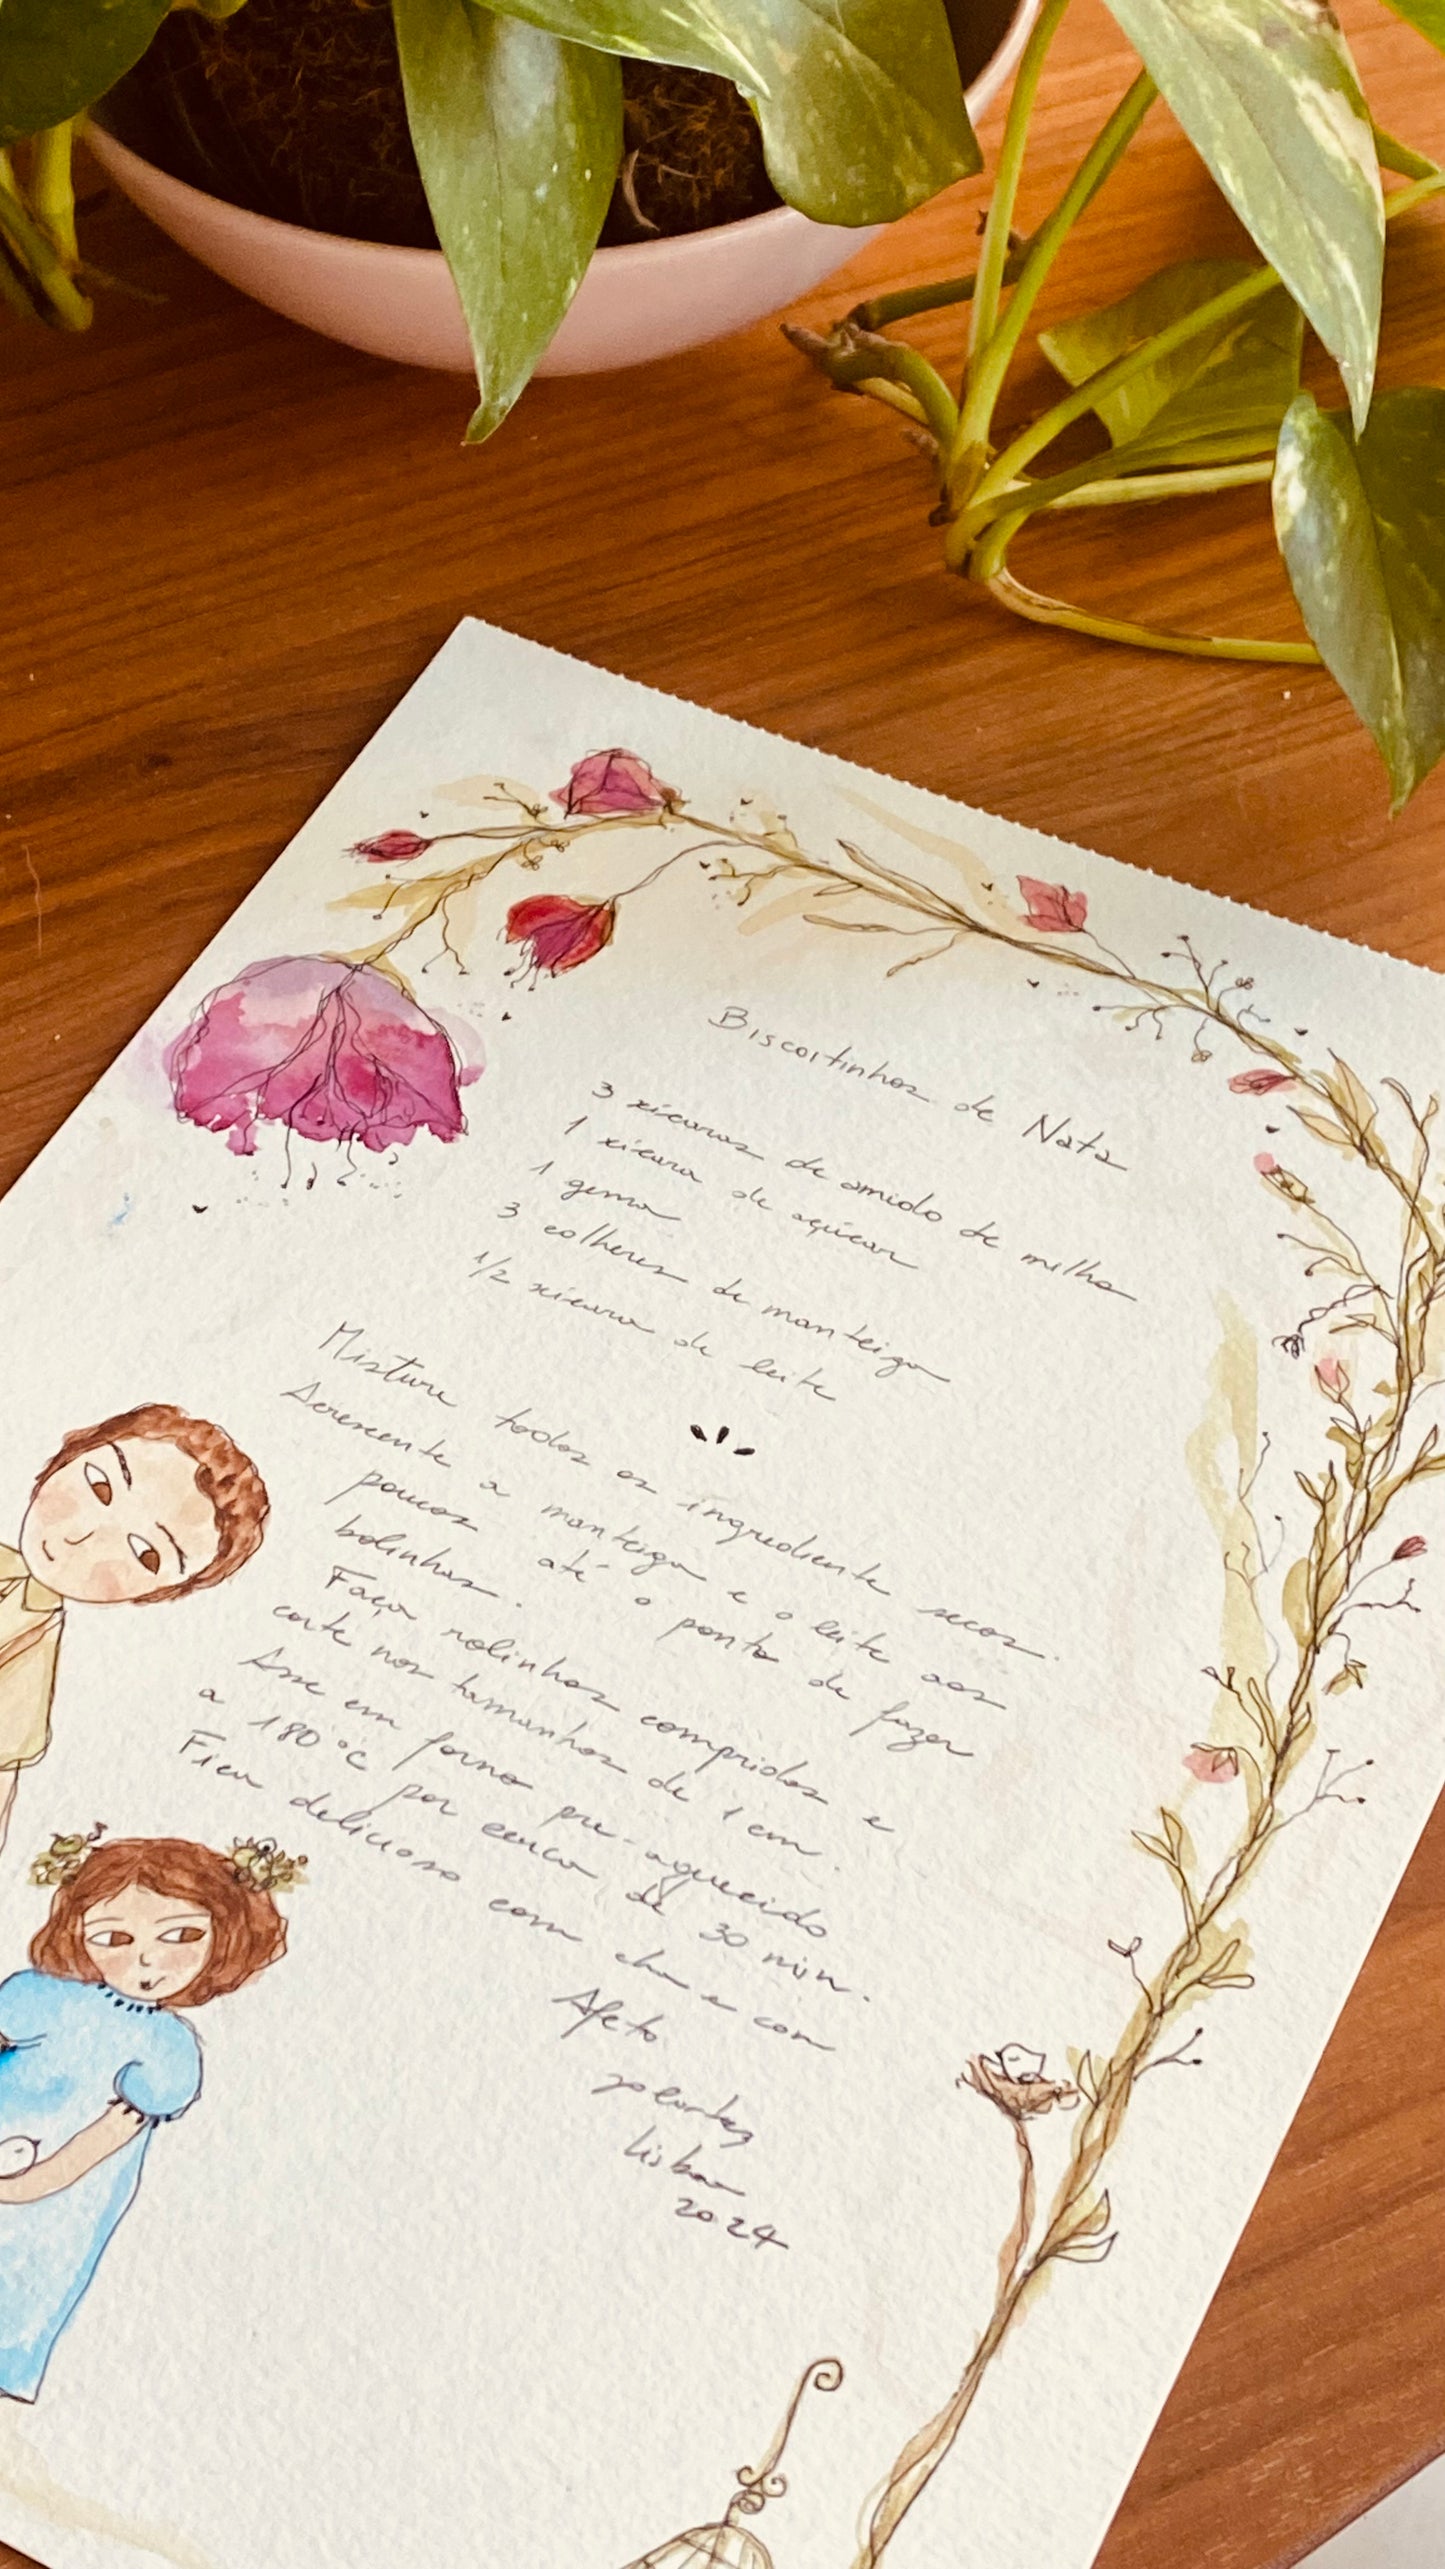 Biscoitinhos de Nata
3 xícaras de amido de milho
1 xícara de açúcar
1 gema
3 colheres de manteiga
1/2 xícara de leite
Misture todos os ingrediente secos.
Acrescente a manteiga e o leite aos
poucos até o ponto de fazer
bolinhas.
Faça rolinhos compridos e
corte nos tamanhos de 1 cm.
Asse em forno pre-aquecido
a 180°C por cerca de 30 min.
Fica delicioso com cha e com
Afeto
Lisboa
2024